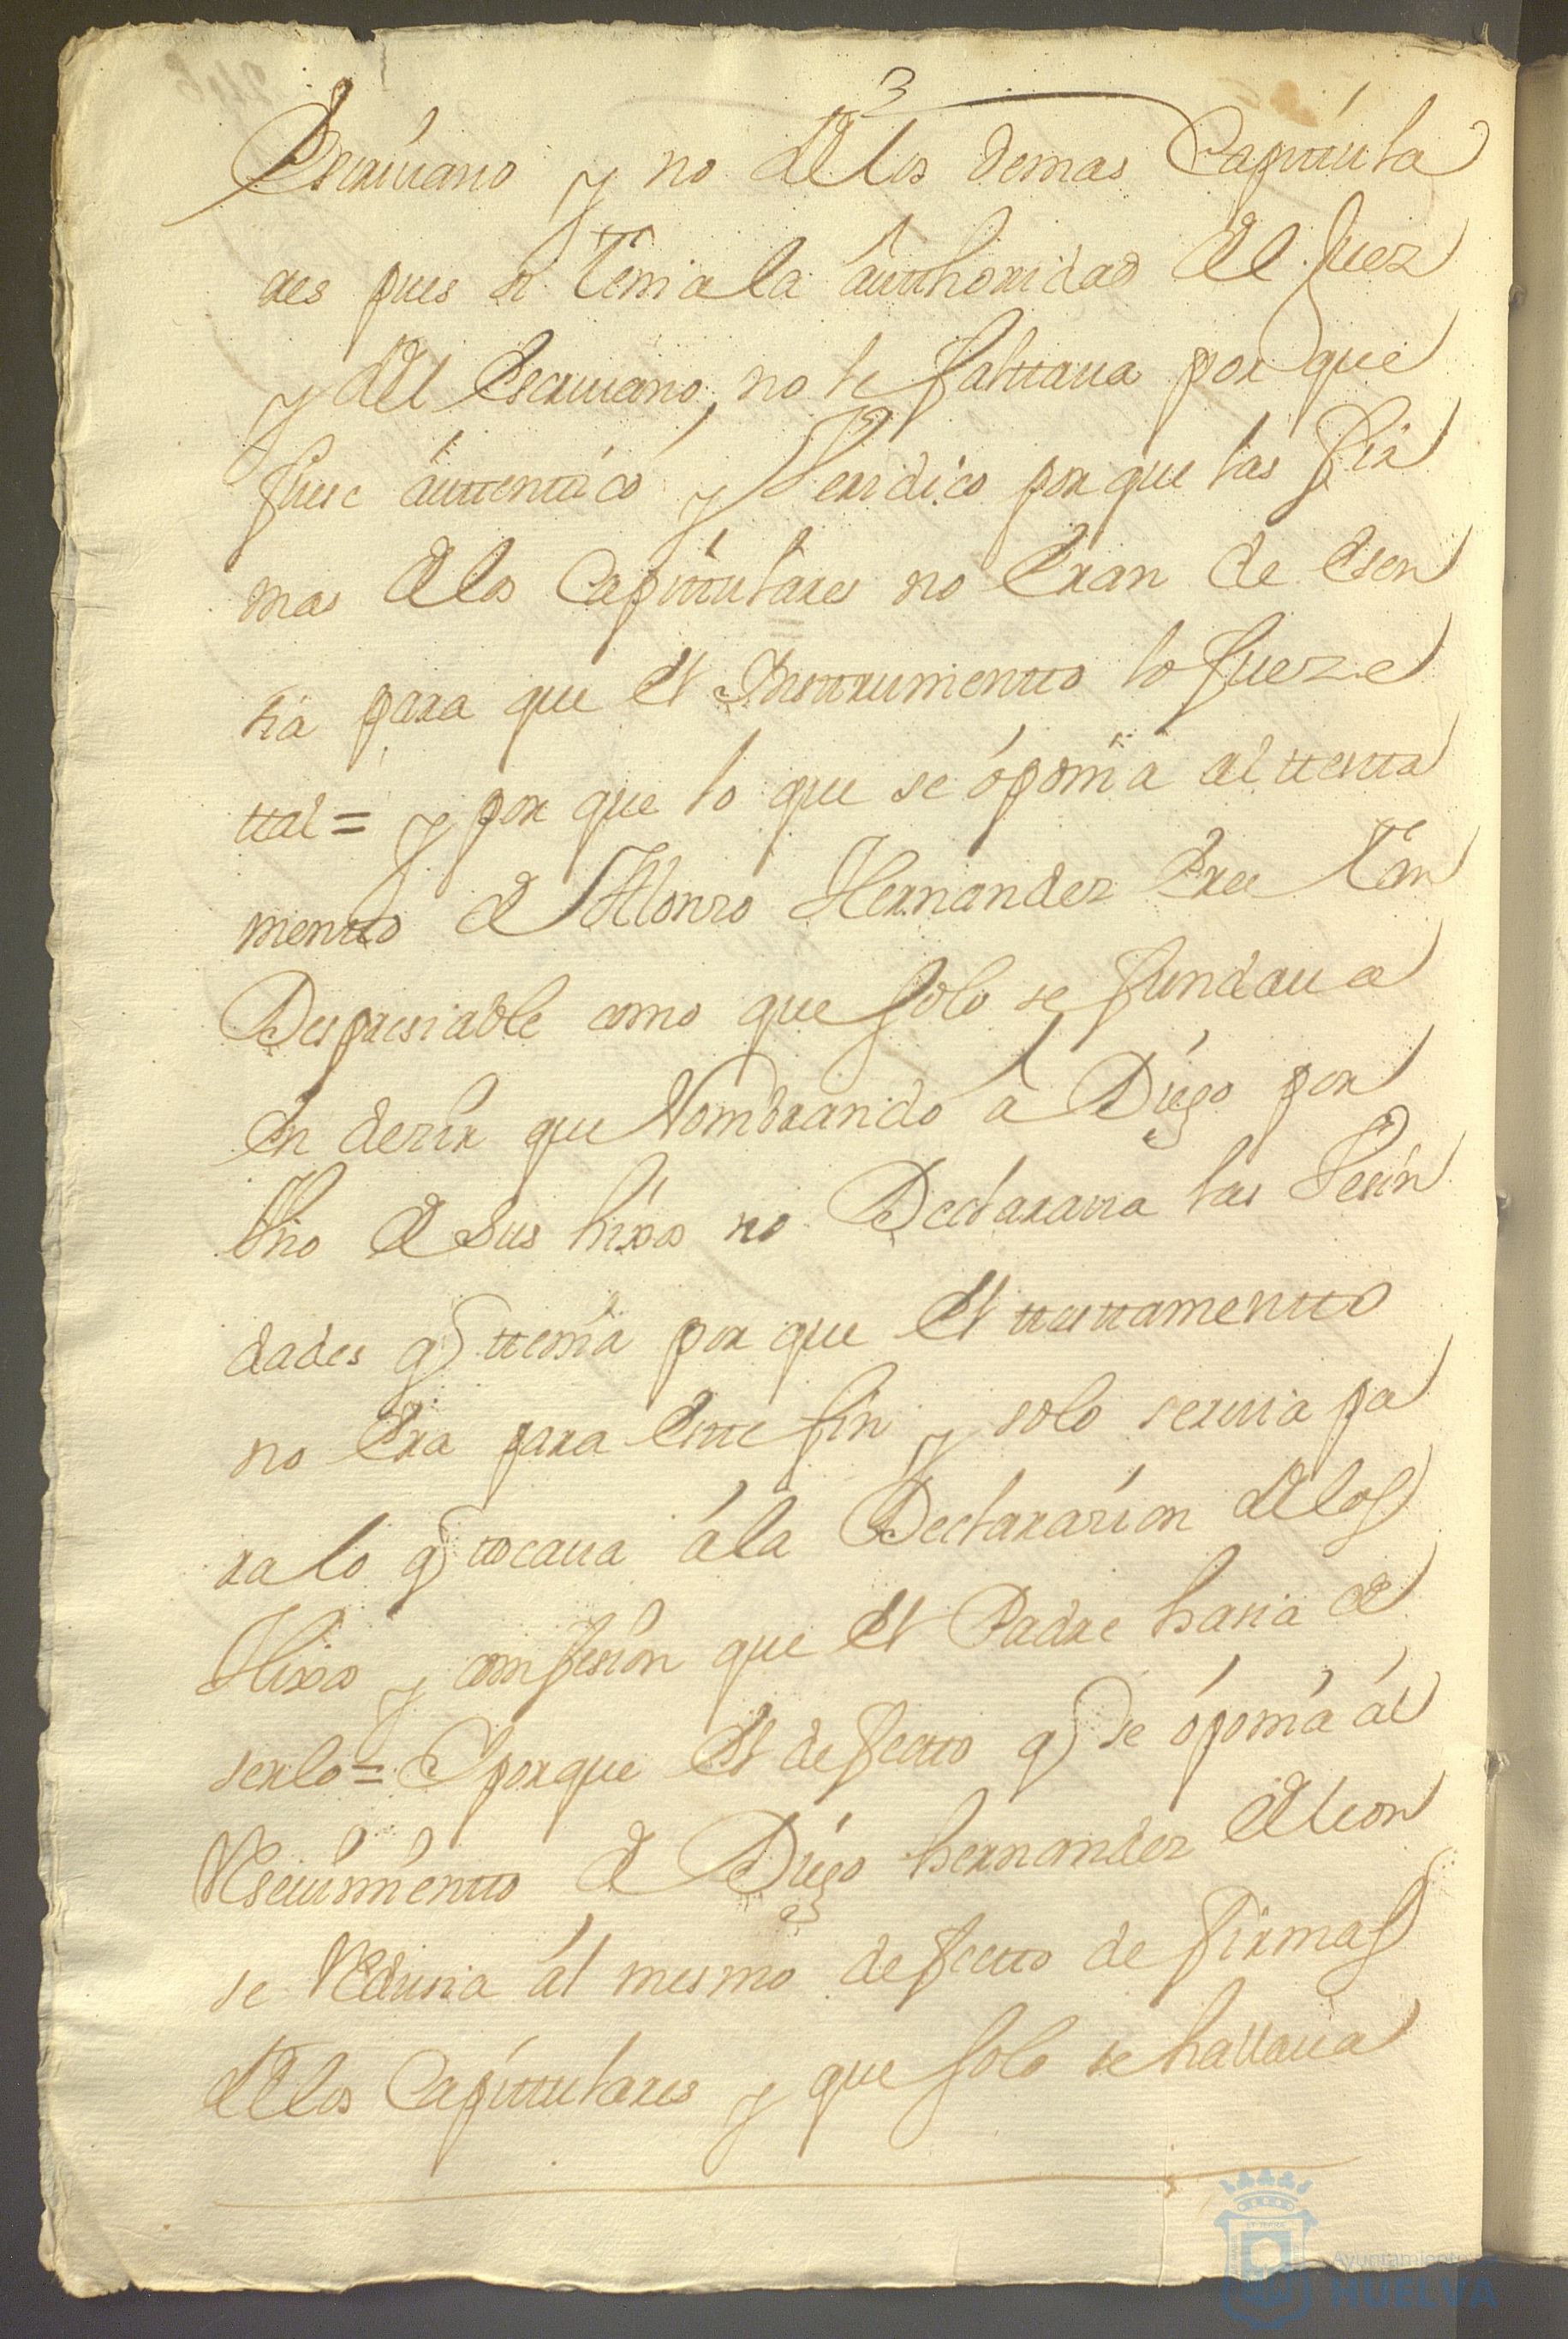 3
Escriuano y no de los demas Capittula
res pues si tenia laautthoridad del Juez
y del Escriuano, no le faltaua por que
fuese auttentico y Veridico por que las fir
mas de los Capittulares no Eran de esen
sia para que el Insttrumentto lo fueze
ttal = y por que lo que se oponia al ttestta
mentto de Alonso Hernandez Era tan
Despresiable como que solo se fundaua
En dezir que Nombrando a Diego por
Vno de sus hixos no Declararia las Vesin
dades q ttenia por que el ttesttamentto
no Era para Estte fin y solo seruia pa
ra lo q ttocaua a la Declarazion de los
Hixos y comfesion que el Padre hasia de
serlo = Y porque el defectto q se oponia al
Reseuimientto de Diego hernandez de leon
se Redusia al mesmo defectto de firmas
de los Capittulares y que solo se hallaua
Ayuntamiento
HUELVA